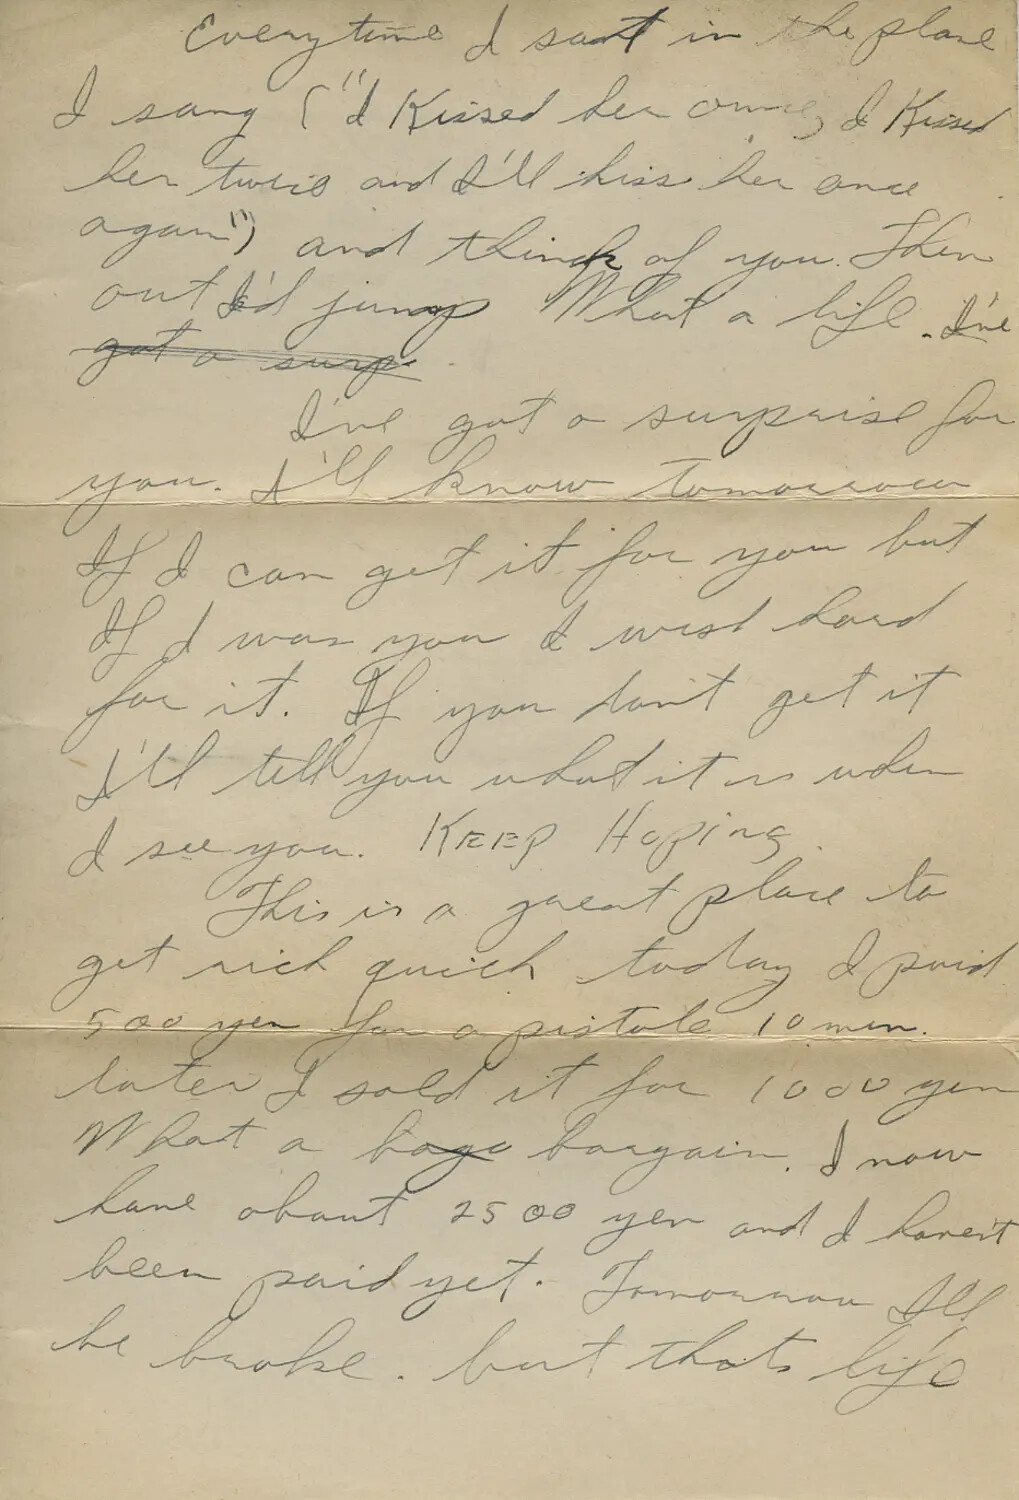 Everytime I sat in the plane
I sang ("I Kissed her once, I Kissed
her twice and I'll kiss her once
again") and think of you. Then
out I'd jump What a life. I've
got a surp
I've got a surprise for
you. I'll know tomorrow
If I can get it for you but
If I was you I wish hard
for it. If you don't get it
I'll tell you what it is when
I see you. KEEP Hoping.
This is a great place to
get rich quick today I paid
500 yen for a pistole 10 min.
later I sold it for 1000 yen
What a bage bargain. I now
have about 2500 yen and I haven't
been paid yet. Tomorrow I'll
be broke. but thats life